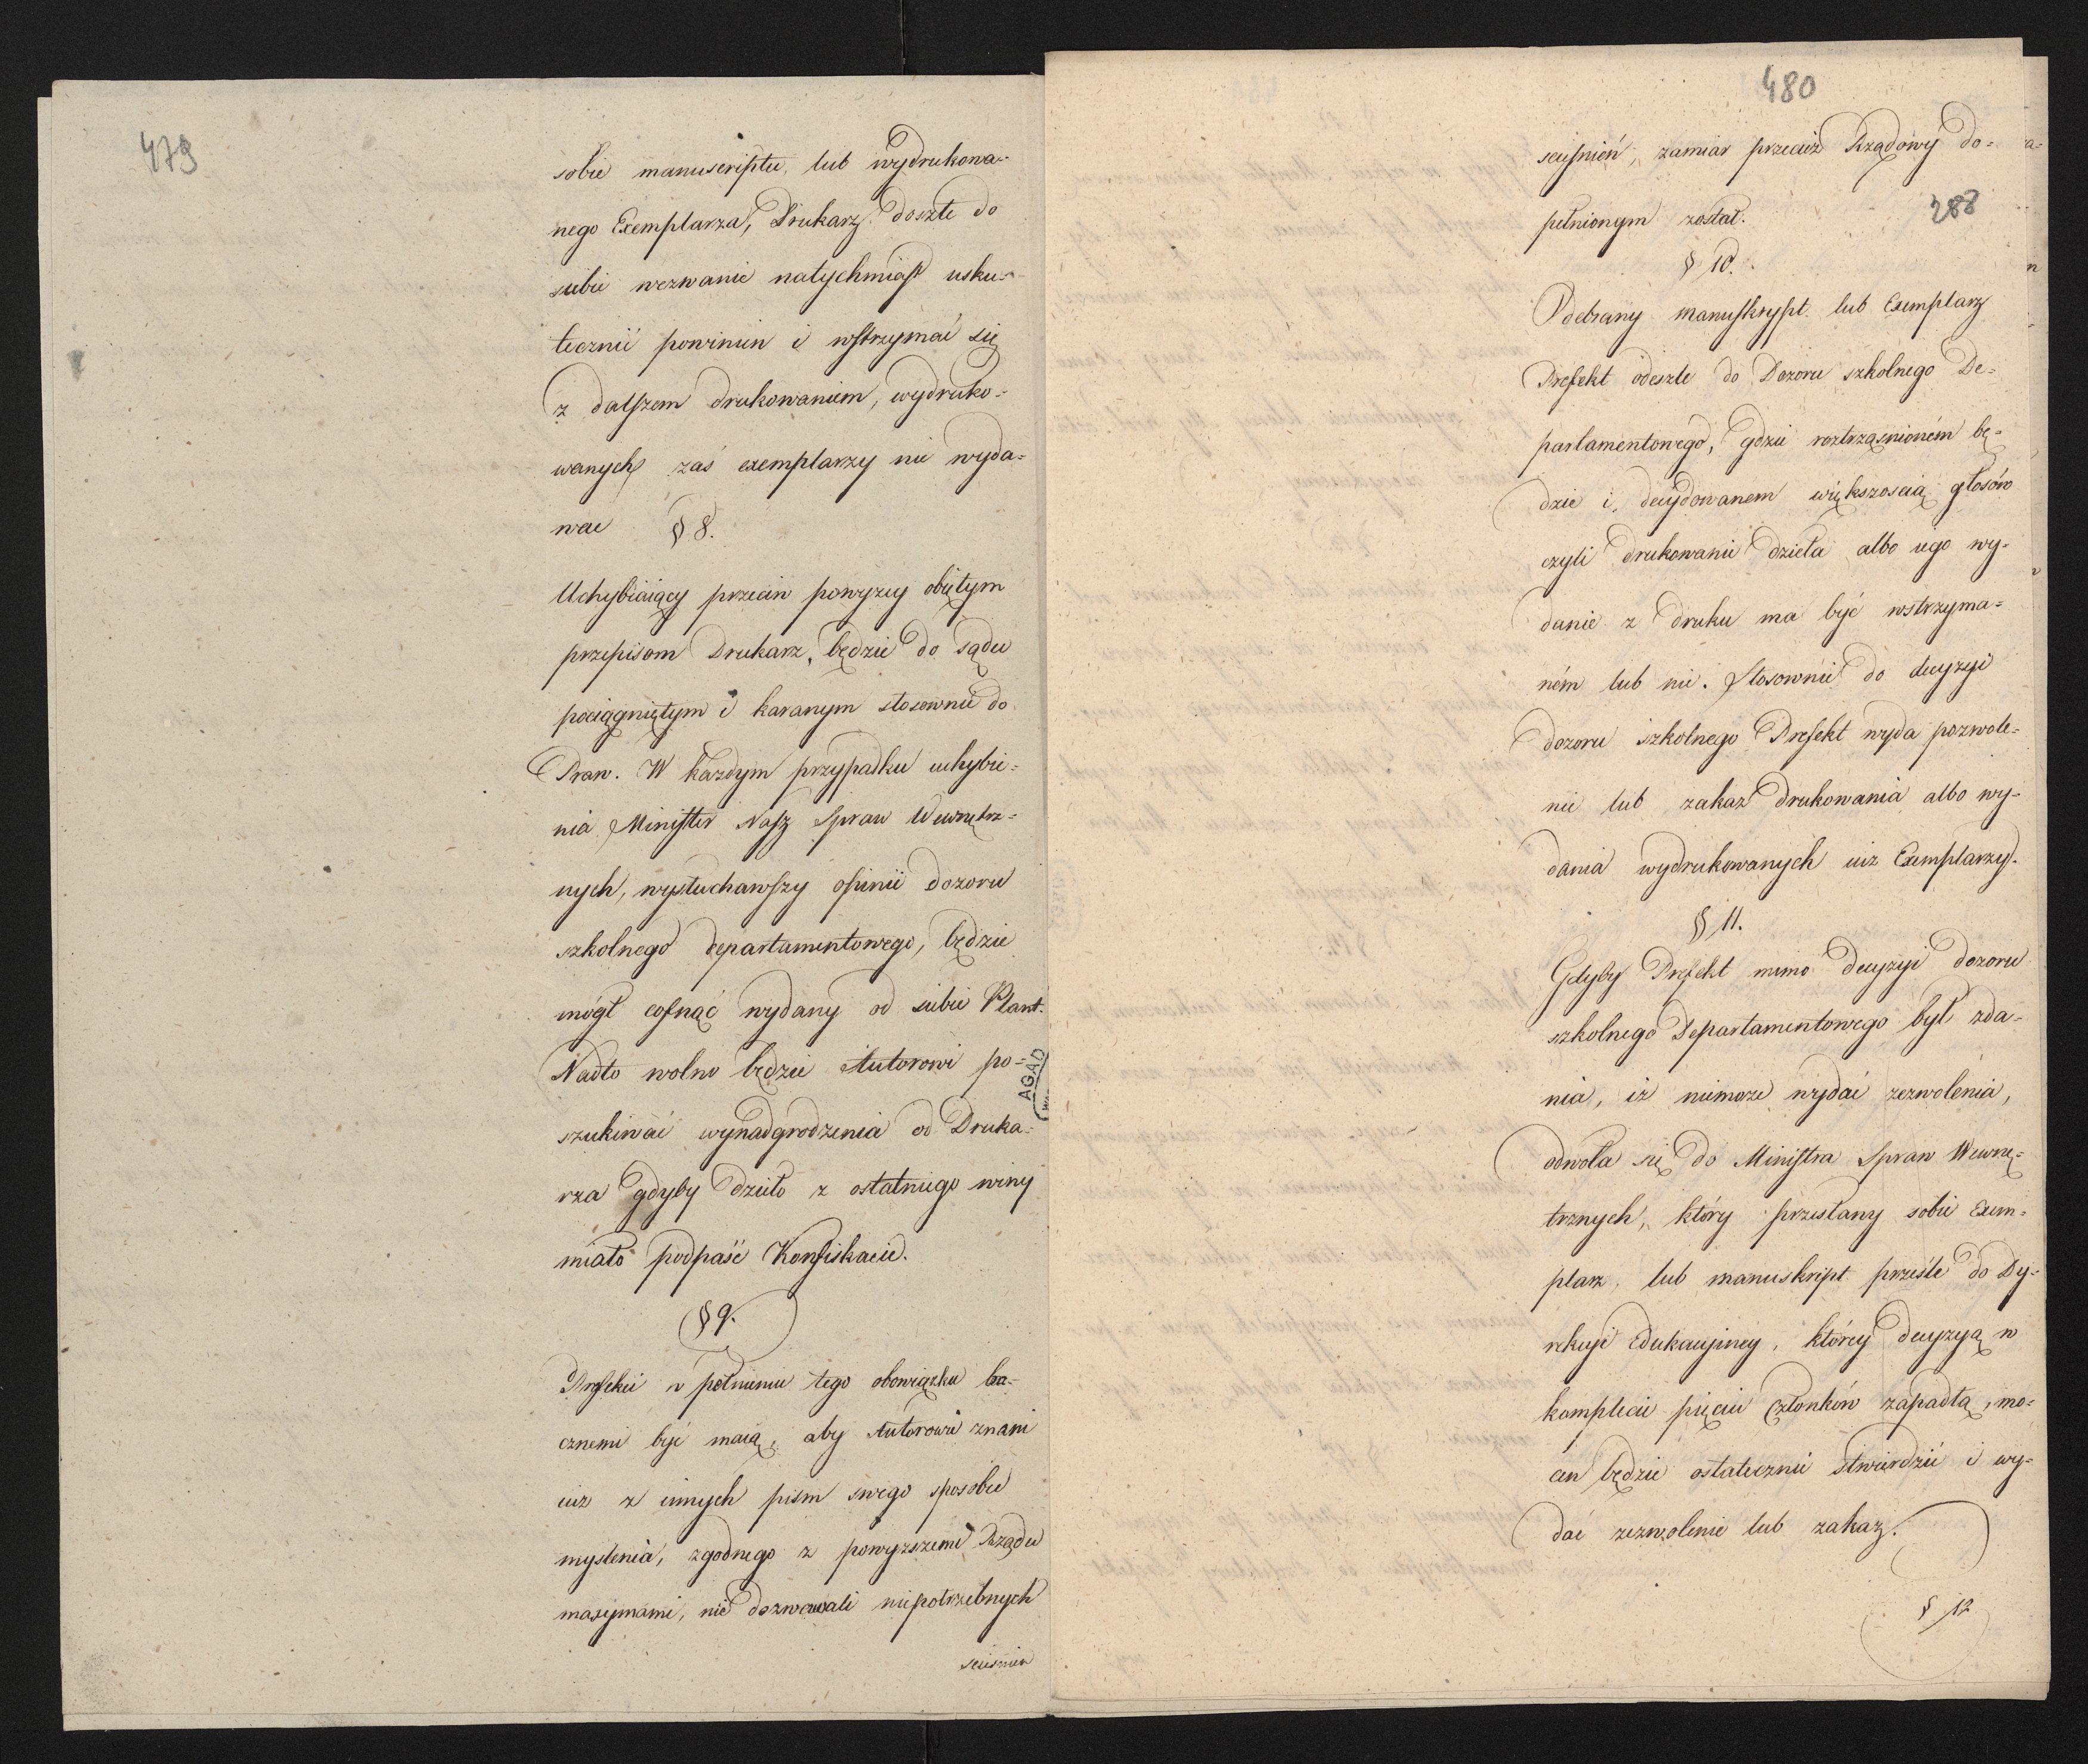 479
sobie manuscriptu, lub wydrukowa=
nego Exemplarza, Drukarz doszłe do
siebie wezwanie natychmiast usku=
tecznić powinien i wstrzymać się
z dalszem drukowaniem, wydruko=
wanych zaś exemplarzy nie wyda=
wać § 8.
Uchybiaiący przeciw powyzey obiętym
przepisom Drukarz, będzie do sądu
pociągniętym i karanym stosownie do
Praw. W kazdym przypadku uchybie=
nia Minister Nasz Spraw Wewnętrz=
nych, wysłuchawszy opinii dozoru
szkolnego departamentowego, będzie
mógł cofnąć wydany od siebie Patent.
Nadto wolno będzie Autorowi po=
szukiwać wynadgrodzenia od Druka=
rza gdyby dzieło z ostatniego winy
miało podpaść Konfiskacie.
§ 9.
Prefekci w pełnieniu tego obowiązku ba=
cznemi być maią, aby Autorowie znani
iuz z innych pism swego sposobu
myslenia, zgodnego z powyzszemi Rządu
maxymami, nie doznawali niepotrzebnych
sciesnien
A.G.A.D
480
sciesnień, zamiar przeciez Rządowy do=
pełnionym został.
288
§ 10.
Odebrany manuskrypt lub Exemplarz
Prefekt odeszle do Dozoru szkolnego De=
partamentowego, gdzie roztrząsnioném bę=
dzie i decydowanem większoscią głosów
czyli drukowanie dzieła albo iego wy=
danie z druku ma być wstrzyma=
ném lub nie. Stosownie do decyzyi
dozoru szkolnego Prefekt wyda pozwole=
nie lub zakaz drukowania albo wy=
dania wydrukowanych iuz Exemplarzy.
§ 11.
Gdyby Prefekt mimo decyzyi dozoru
szkolnego Departamentowego był zda=
nia, iz niemoze wydać zezwolenia,
odwoła się do Ministra Spraw Wewnę=
trznych, który przesłany sobie Exem=
plarz, lub manuskript prześle do Dy=
rekcyi Edukacyiney, którey decyzyą w
komplecie pięciu Członków zapadłą, mo=
cen będzie ostatecznie stwierdzić i wy=
dać zezwolenie lub zakaz.
§ 12